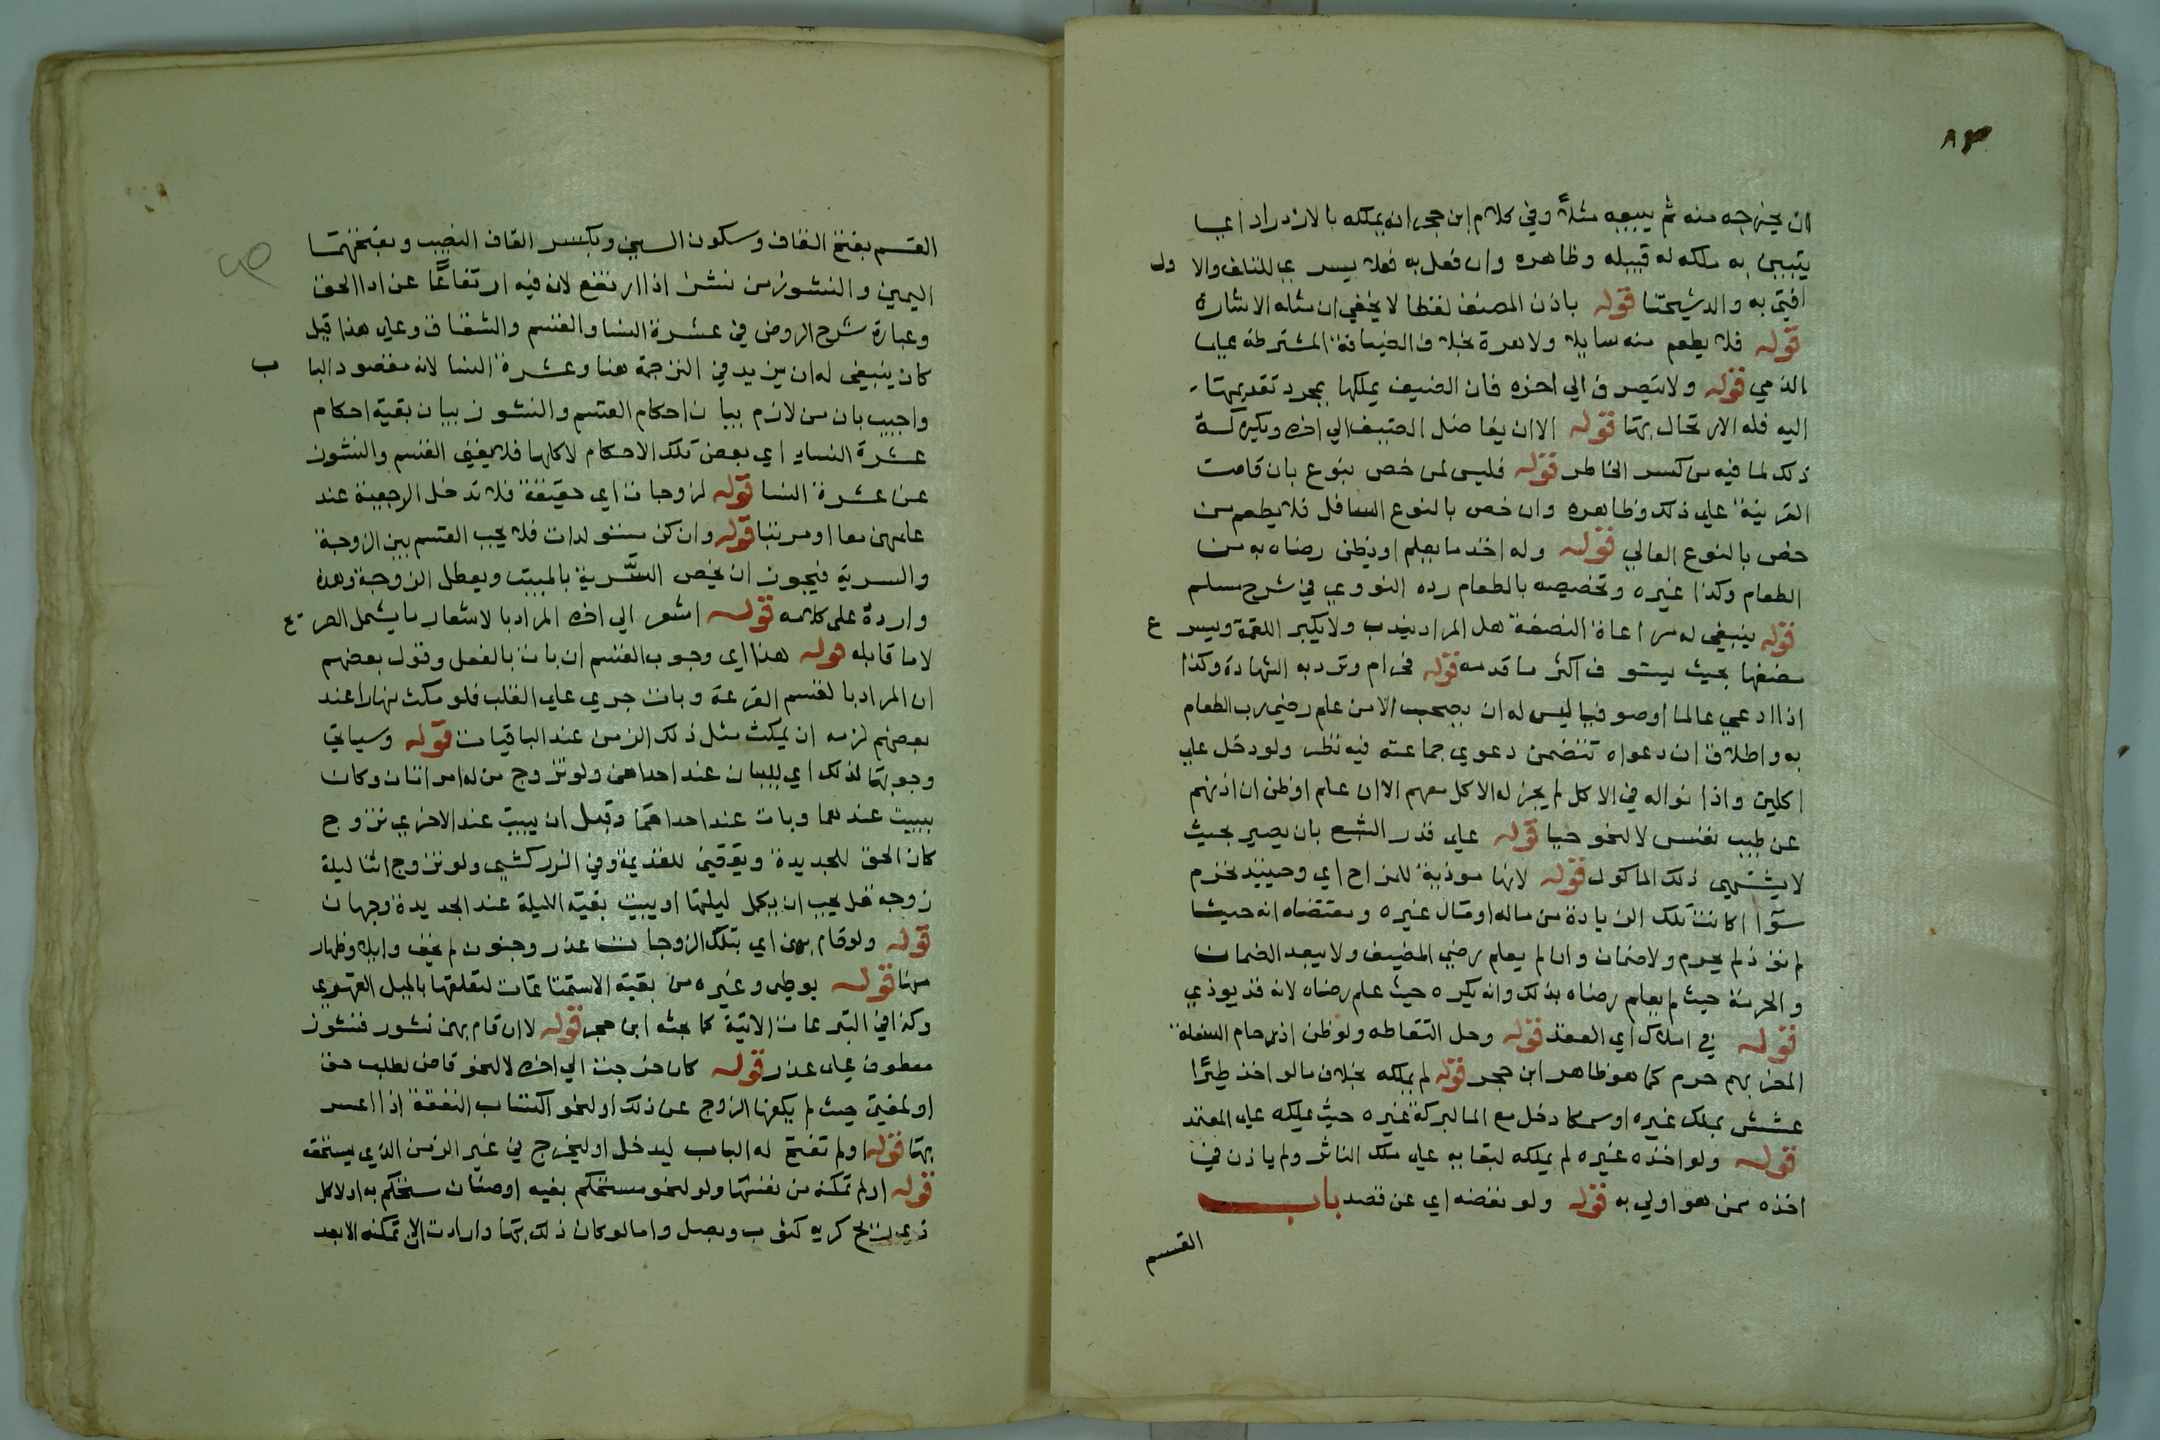 ٨٣
ان يخرجه منه ثم يبيعه مثلاً وفي كلام ابن حجر انه يملكه بالازدراد اي
يتبين به ملكه له قبيله وظاهره وان فعل به فعلا يسرع للتلف والا ول
افتى به والد شيخنا قوله باذن المصنف لفظا لا يخفي ان مثله الاشارة
قوله فلا يطعم منه سايلا ولا هرة بخلاف الضيافة المشترطة علي
الذمي قوله ولا يتصرف الي اخره فان الضيف يملكها بمجرد تقديمها
اليه فله الارتحال بها قوله الا ان يفاضل الضيف الي اخره ويكره له
ذلك لما فيه من كسر الخاطر قوله فليس لمن خص بنوع بان قامت
القرينة علي ذلك وظاهره وان خص بالنوع السافل فلا يطعم من
خص بالنوع العالي قوله وله اخذ ما يعلم او يظن رضاه به من
الطعام وكذا غيره وتخصيصه بالطعام رده النووي في شرح مسلم
قوله ينبغي له مراعاة النصفة هل المراد يندب ولا يكبر اللقمة ويسرع
مضغها بحيث يستوفي اكثر ما قدمه قوله فحرام وترد به الشهادة وكذا
اذا ادعي عالما او صوفيا ليس له ان يصحب الا من علم رضي رب الطعام
به واطلاق ان دعواه تتضمن دعوي جماعته فيه نظر ولو دخل علي
اكلين واذنواله في الاكل لم يجز له الاكل معهم الا ان علم او ظن ان اذنهم
عن طيب نفس لا لنحو حيا قوله علي قدر الشبع بان يصير بحيث
لا يشتهي ذلك الماكول قوله لانها موذية للمزاح اي وحينيذ تحرم
سوآ اكانت تلك الزيادة من ماله او مال غيره ومقتضاه انه حيث
لم توذ لم يحرم ولا ضمان وان لم يعلم رضي المضيف ولا يبعد الضمان
والحرمة حيث لم يعلم رضاه بذلك وانه يكره حيث علم رضاه لانه قد يوذي
قوله في املاك اي العقد قوله وحل التقاطه ولو ظن ازدحام السفلة
المحز بهم حرم كما هو ظاهر ابن حجر قوله لم يملكه بخلاف ما لو اخذ طيرًا
عشش بملك غيره او سمكا دخل مع الما لبركة غيره حيث يملكه علي المعتمد
قوله ولو اخذه غيره لم يملكه لبقايه علي ملك الناثر ولم ياذن في
اخذه ممن هو اولي به قوله ولو نفضه اي عن قصد باب
القسم
القسم بفتح القاف وسكون السين وبكسر القاف النصيب وبفتحهما
اليمين والنشوز من نشز اذا ارتفع لان فيه ارتفاعًا عن ادا الحق
وعبارة شرح الروض في عشرة النسا والقسم والشقاق وعلي هذا قيل
كان ينبغي له ان يزيد في الترجمة هنا وعشرة النسا لانه مقصود البا ب
واجيب بان من لازم بيان احكام القسم والنشوز بيان بقية احكام
عشرة النساء اي بعض تلك الاحكام لا كلها فلا يغني القسم والنشوز
عن عشرة النسا قوله لزوجات اي حقيقة فلا تدخل الرجعية عند
عليهن معا او مرتبا قوله وان كن مستولدات فلا يجب القسم بين الزوجة
والسرية فيجوز ان يخص السّرية بالمبيت ويعطل الزوجة وهذه
واردة على كلامه قوله اشعر الي اخره المراد بالاشعار ما يشمل الصريح
لا ما قابله قوله هذا اي وجوب القسم ان بات بالفعل وقول بعضهم
ان المراد بالقسم القرعة وبات جري علي الغلب فلو مكث نهارا عند
بعضهم لزمه ان يمكث مثل ذلك الزمن عند الباقيات قوله وسياتي
وجوبها لذلك اي للبيان عند احداهن ولو تزوج من له امراتان وكان
يبيت عندهما وبات عند احداهما وقبل ان يبيت عند الاخري تزوج
كان الحق للجديدة ويوفي للقديمة وفي الزركشي ولو تزوج اثنا ليلة
زوجة هل يجب ان يكمل ليلتها او يبيت بقية الليلة عند الجديدة وجهان
قوله ولو قام بهن اي بتلك الزوجات عذر وجنون لم يخف وايلا وظهار
منها قوله بوطي وغيره من بقية الاستمتاعات لتعلقها بالميل القهري
وكذا في التبرعات الاتية كما بحثه ابن حجر قوله لا ان قام بهن نشوز فنشوز
معطوف علي عذر قوله كان خرجت الي اخره لا لنحو قاض لطلب حق
او لمفتي حيث لم يكفها الزوج عن ذلك او لنحو اكتساب النفقة اذا اعسر
بها قوله او لم تفتح له الباب ليدخل او ليخرج في غير الزمن الذي يستحقه
قوله او لم تمكنه من نفسها ولو لنحو مستحكم بفيه او صنان مستحكم به او لاكل
ذي ريح كريه كثوب وبصل واما لو كان ذلك بها وارادت ان تمكنه الا بعد